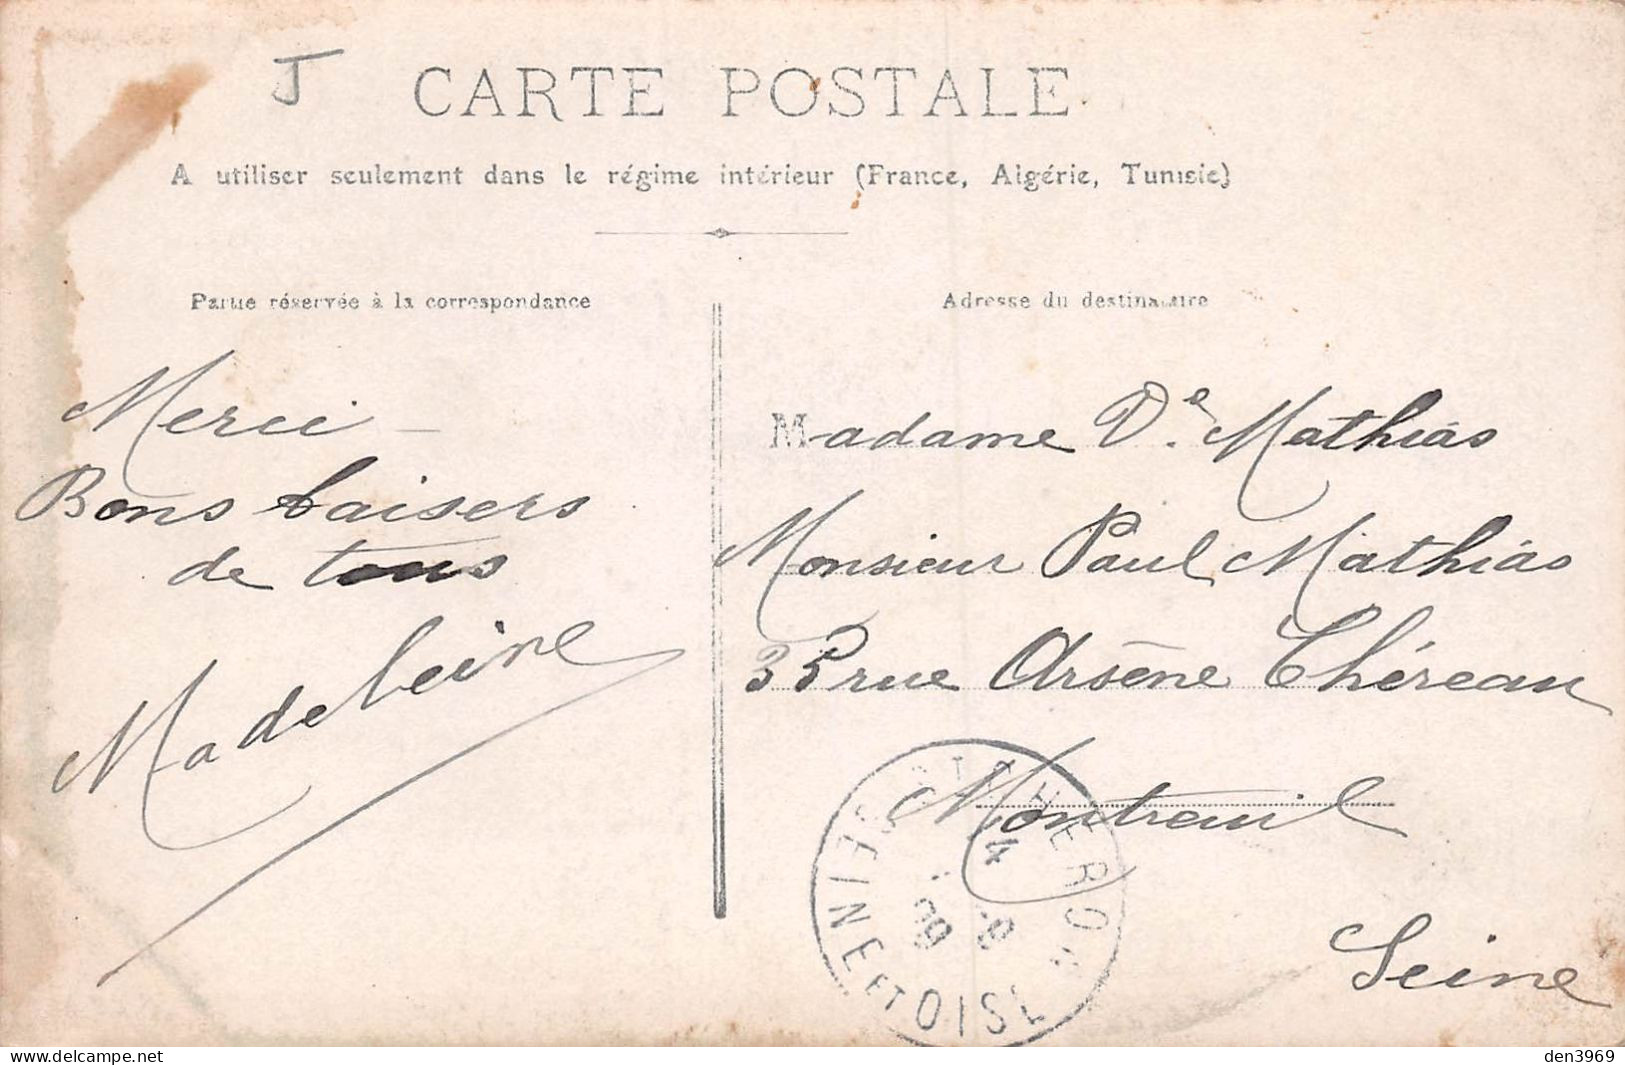 J
CARTE POSTALE
A utiliser seulement dans le régime intérieur (France, Algérie, Tunisie)
Partie réservée à la correspondance
Merci –
Bons baisers
de tous
Madeleine
Adresse du destinataire
Madame Ve Mathias
Monsieur Paul Mathias
35 rue Arsène Chéreau
Montreuil
Seine
SEINE ET OISE
www.delcampe.net
den3969